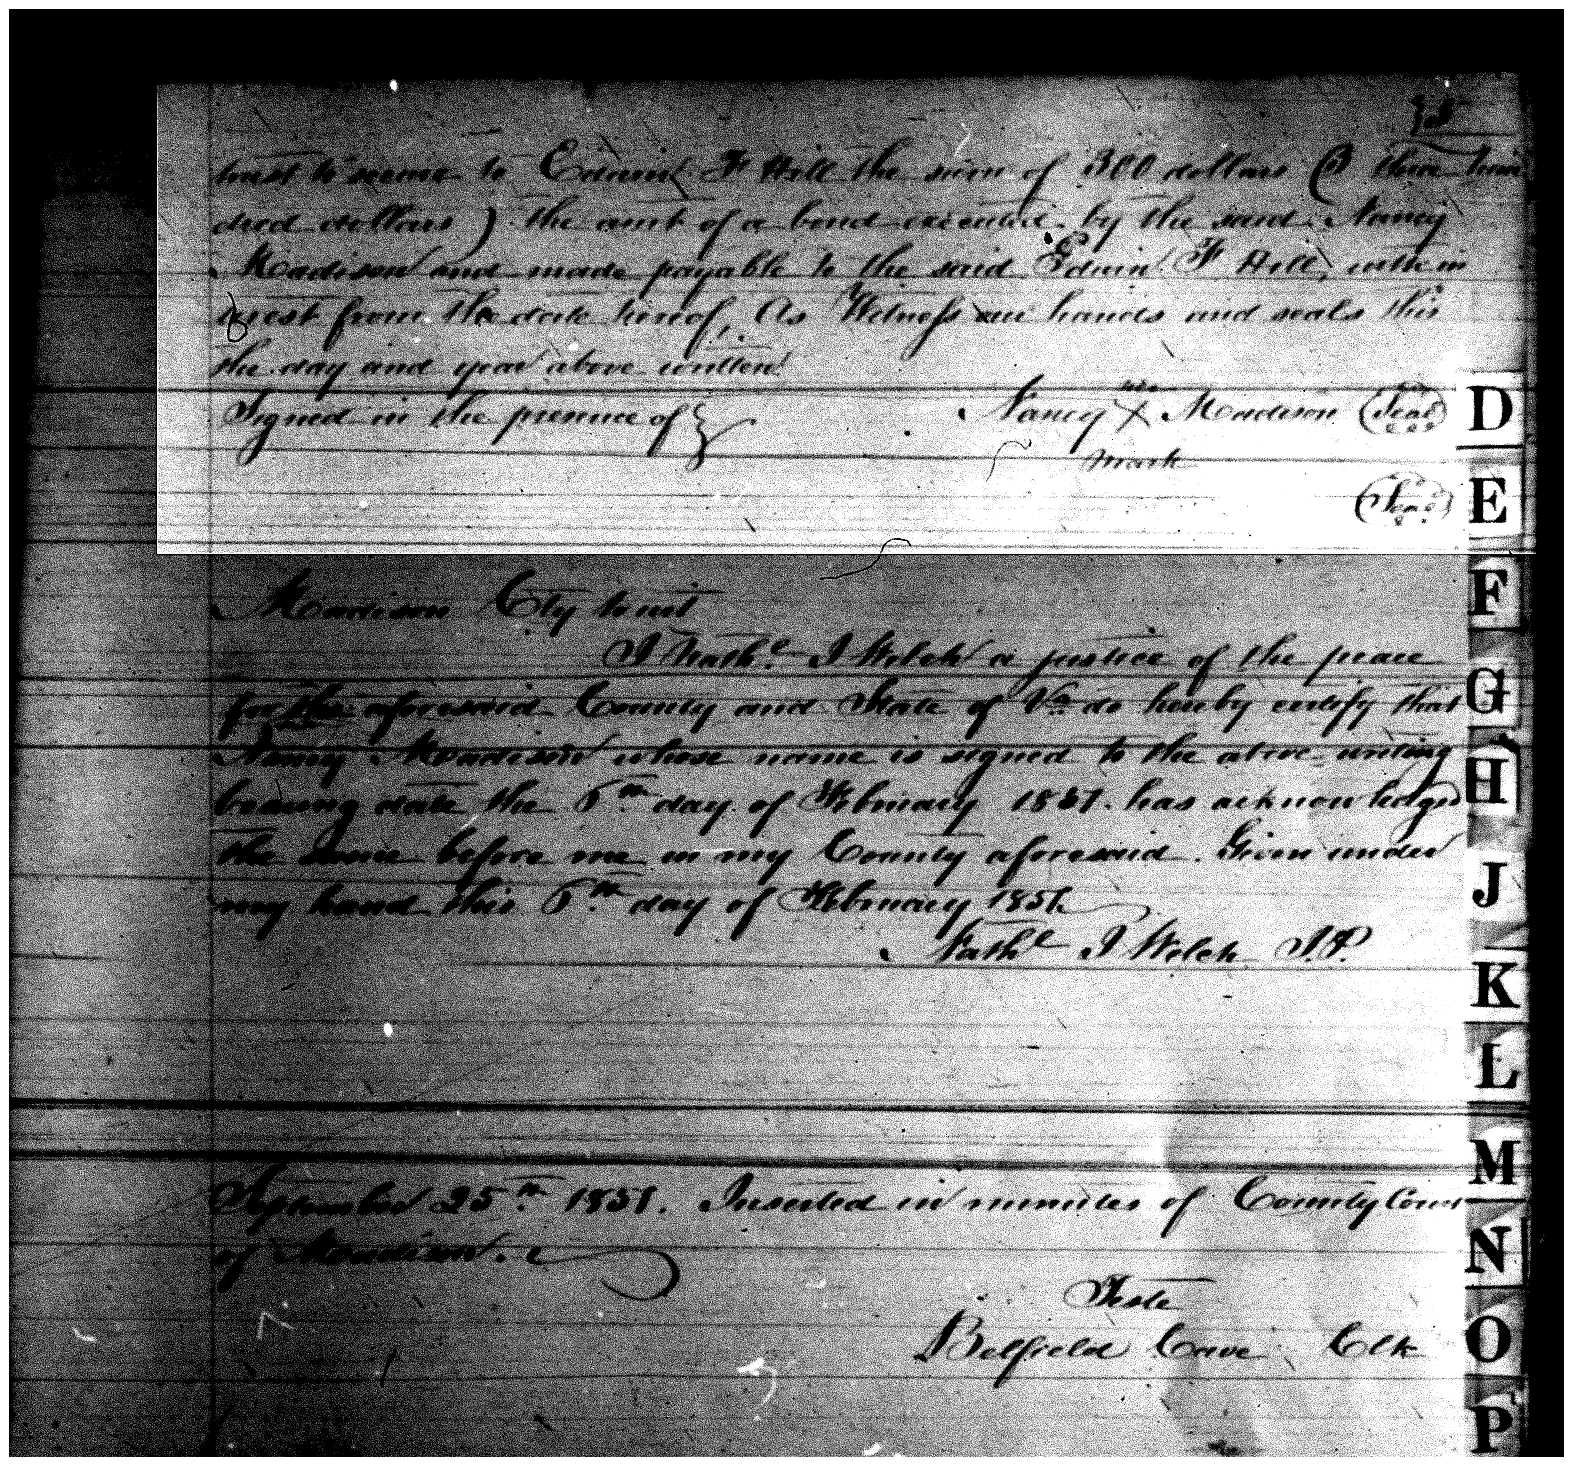 trust to secure to Edwin F Hill the sum of 300 dollars (3 three hun
dred dollars) the amt of a bond executed by the said Nancy
Madison and made payable to the said Edwin F Hill, with in
terest from the date hereof. As Witness our hands and seals this
the day and year above written
Signed in the presence of Nancy X Madison (Seal)
mark
(Seal)
D
E
F
G
H
J
K
L
M
N
O
P
Madison Cty to wit
I Nathl. J Welch a justice of the peace
for the aforesaid County and State of Va. do hereby certify that
Nancy Madison whose name is signed to the above writing
bearing date the 6th day of February 1857. has acknowledged
the same before me in my County aforesaid. Given under
my hand this 6th day of February 1857.
Nathl J Welch J.P.
September 25th 1857. Inserted in minutes of County Court
of Madison.
Teste
Belfield Cave Clk